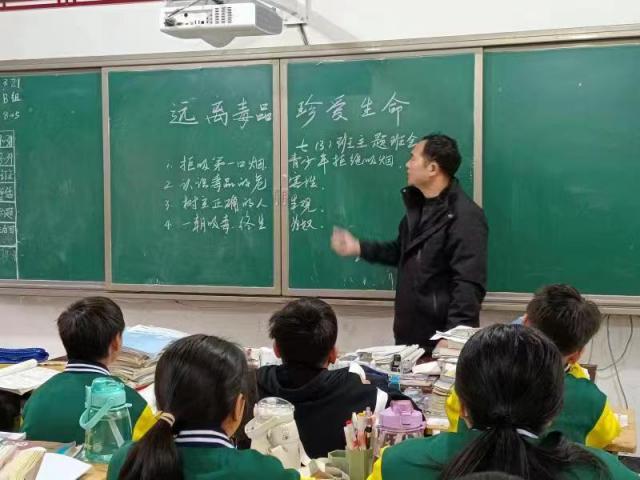 远离毒品 珍爱生命
七(3)班主题班会
1. 拒吸第一口烟,青少年拒绝吸烟.
2. 认识毒品的危害性.
3. 树立正确的人生观.
4. 一朝吸毒.终生为奴
321
B组
805